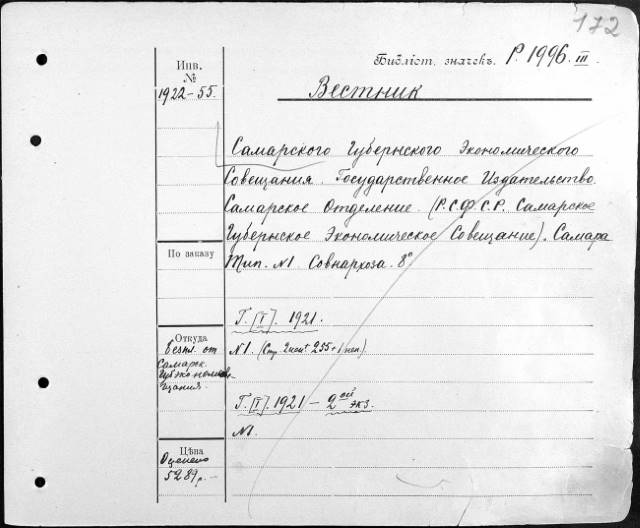 172
Инв. №
1922-55.
Библіот. значекъ. Р. 1996. III.
Вестник
Самарского Губернского Экономического
Совещания. Государственное Издательство.
Самарское Отделение. (Р.С.Ф.С.Р. Самарское
Губернское Экономическое Совещание). Самара
Тип. №1. Совнархоза. 8°
По заказу
Г. [I]. 1921.
№1. (Стр. 2 нен.+ 255 + 1 нен.).
Откуда
Безпл. от
Самарск.
Губэкономсове-
щания.
Г. [I]. 1921 — 2ой экз.
№1.
Цѣна
Оценено
5289 р. —